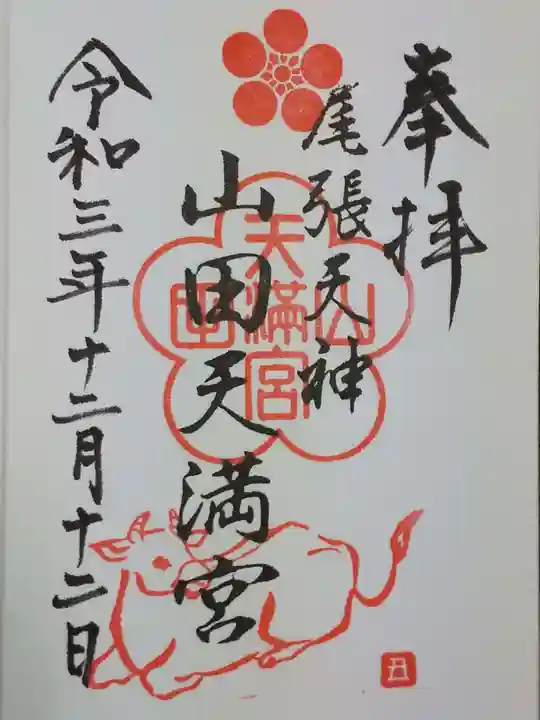 奉拝
尾張天神
山田天満宮
令和三年十二月十二日
山田
天満宮
丑